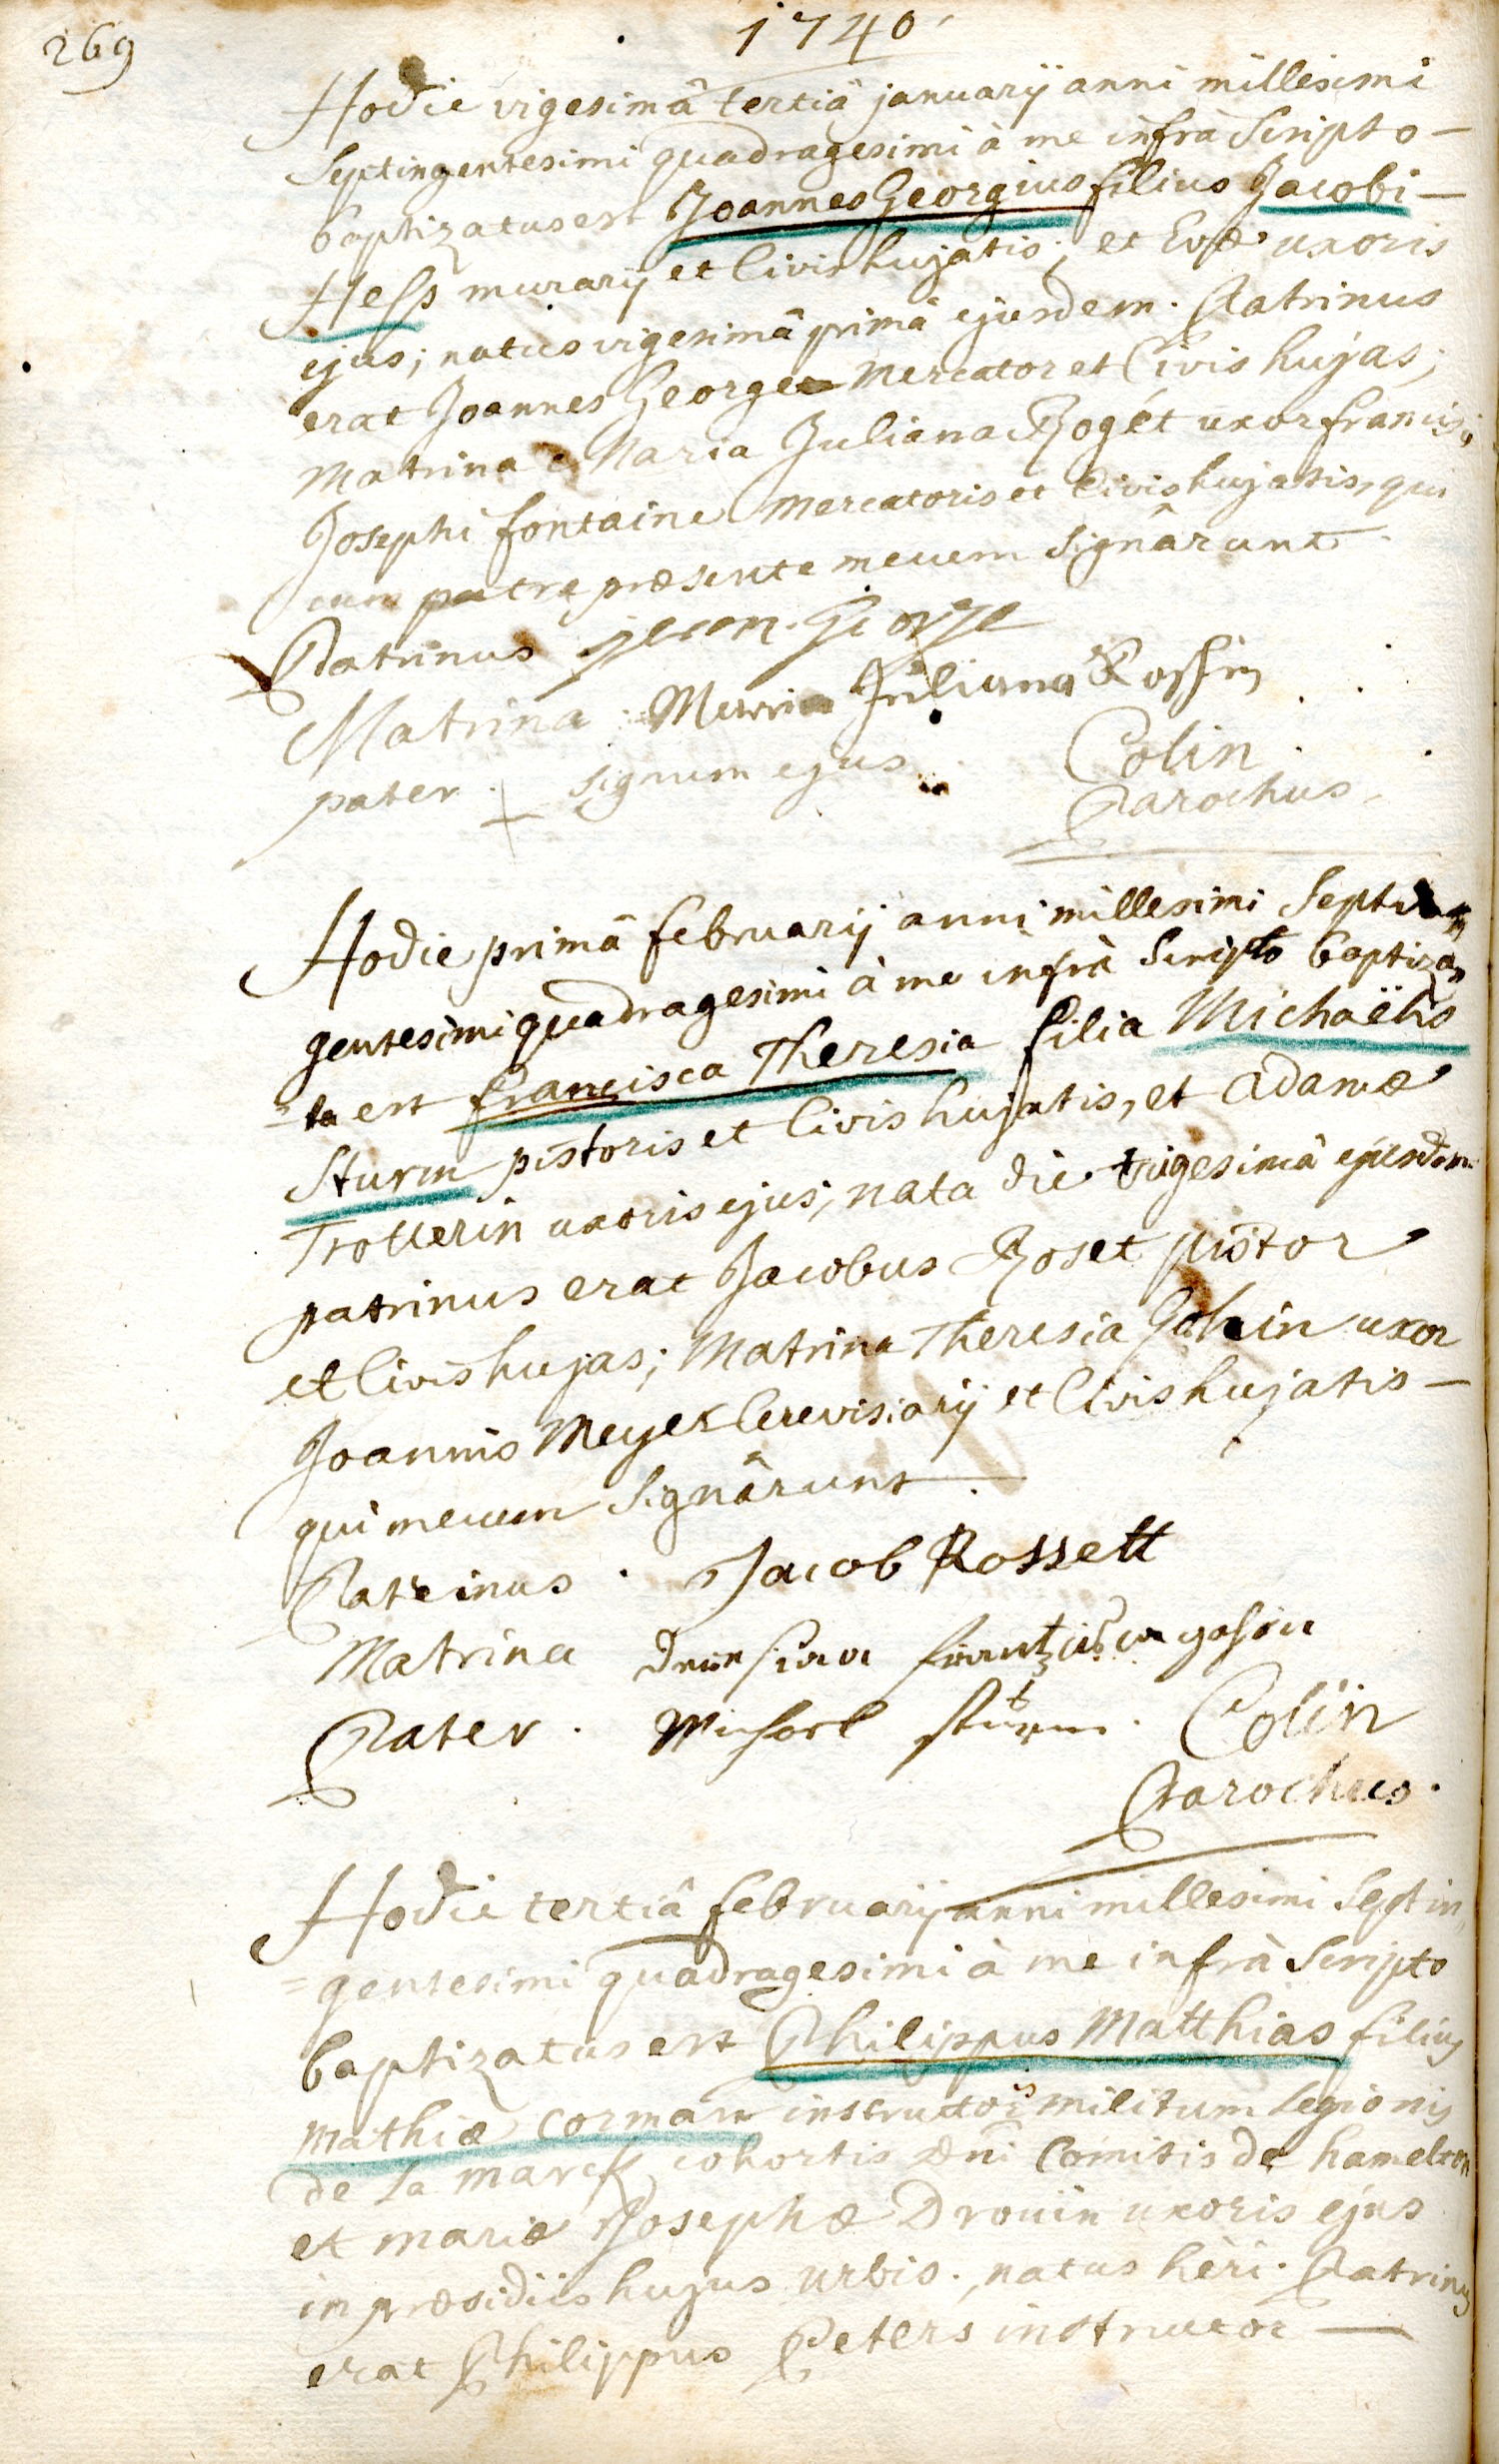 269
1740
Hodie vigesimâ tertiâ januarij anni millesimi
Septingentesimi quadragesimi à me infrà Scripto –
baptizatus est Joannes Georgius filius Jacobi –
Hess murarij et Civis hujatis, et Evæ uxoris
ejus; natus vigesimâ primâ ejusdem. Patrinus
erat Joannes George Mercator et Civis hujas;
Matrina Maria Juliana Roget uxor francisci
Josephi fontaine Mercatoris et Civis hujatis, qui
cum patre præsente mecum Signârunt
Patrinus jean. George
Matrina Maria Juliana
pater + signum ejus Colin
Parochus
Hodie primâ februarij anni millesimi Septin=
gentesimi quadragesimi à me infrà Scripto baptiza=
=ta est francisca Theresia filia Michaëlis
Sturm pistoris et Civis hujatis, et Adamæ
Trotterin uxoris ejus; nata die trigesimâ ejusdem
patrinus erat Jacobus Roset pistor
et Civis hujas; Matrina Theresia uxor
Joannis Meyer Cerevisiarij et Civis hujatis –
qui mecum Signârunt.
Patrinus. Jacob Rossett
Matrina
Pater. Michael Sturm. Colin
Parochus.
Hodie tertiâ februarij anni millesimi Septin,
=gentesimi quadragesimi à me infrà Scripto
baptizatus est Philippus Matthias filius
Mathiæ Corman instructoris militum Legionis
de la marck cohortis Dni Comitis de hamelton
et mariæ Josephæ Drouin uxoris ejus
in præsidiis hujus urbis. natus heri. Patrinus
erat Philippus Peters instructor —